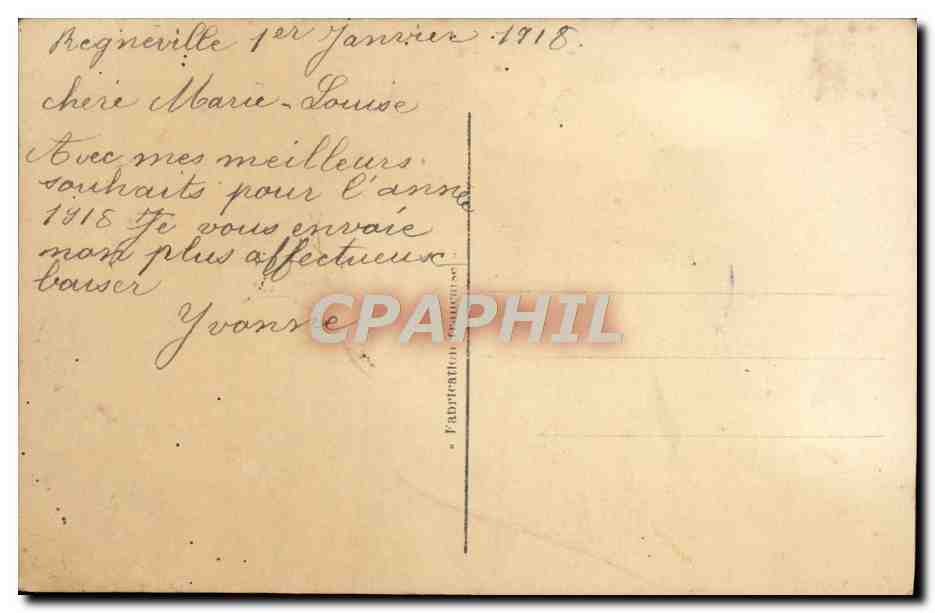 Regnéville 1er Janvier 1918.
chère Marie-Louise
Avec mes meilleurs
souhaits pour l'année
1918 Je vous envoie
mon plus affectueux
baiser
Yvonne
CPAPHIL
Fabrication française